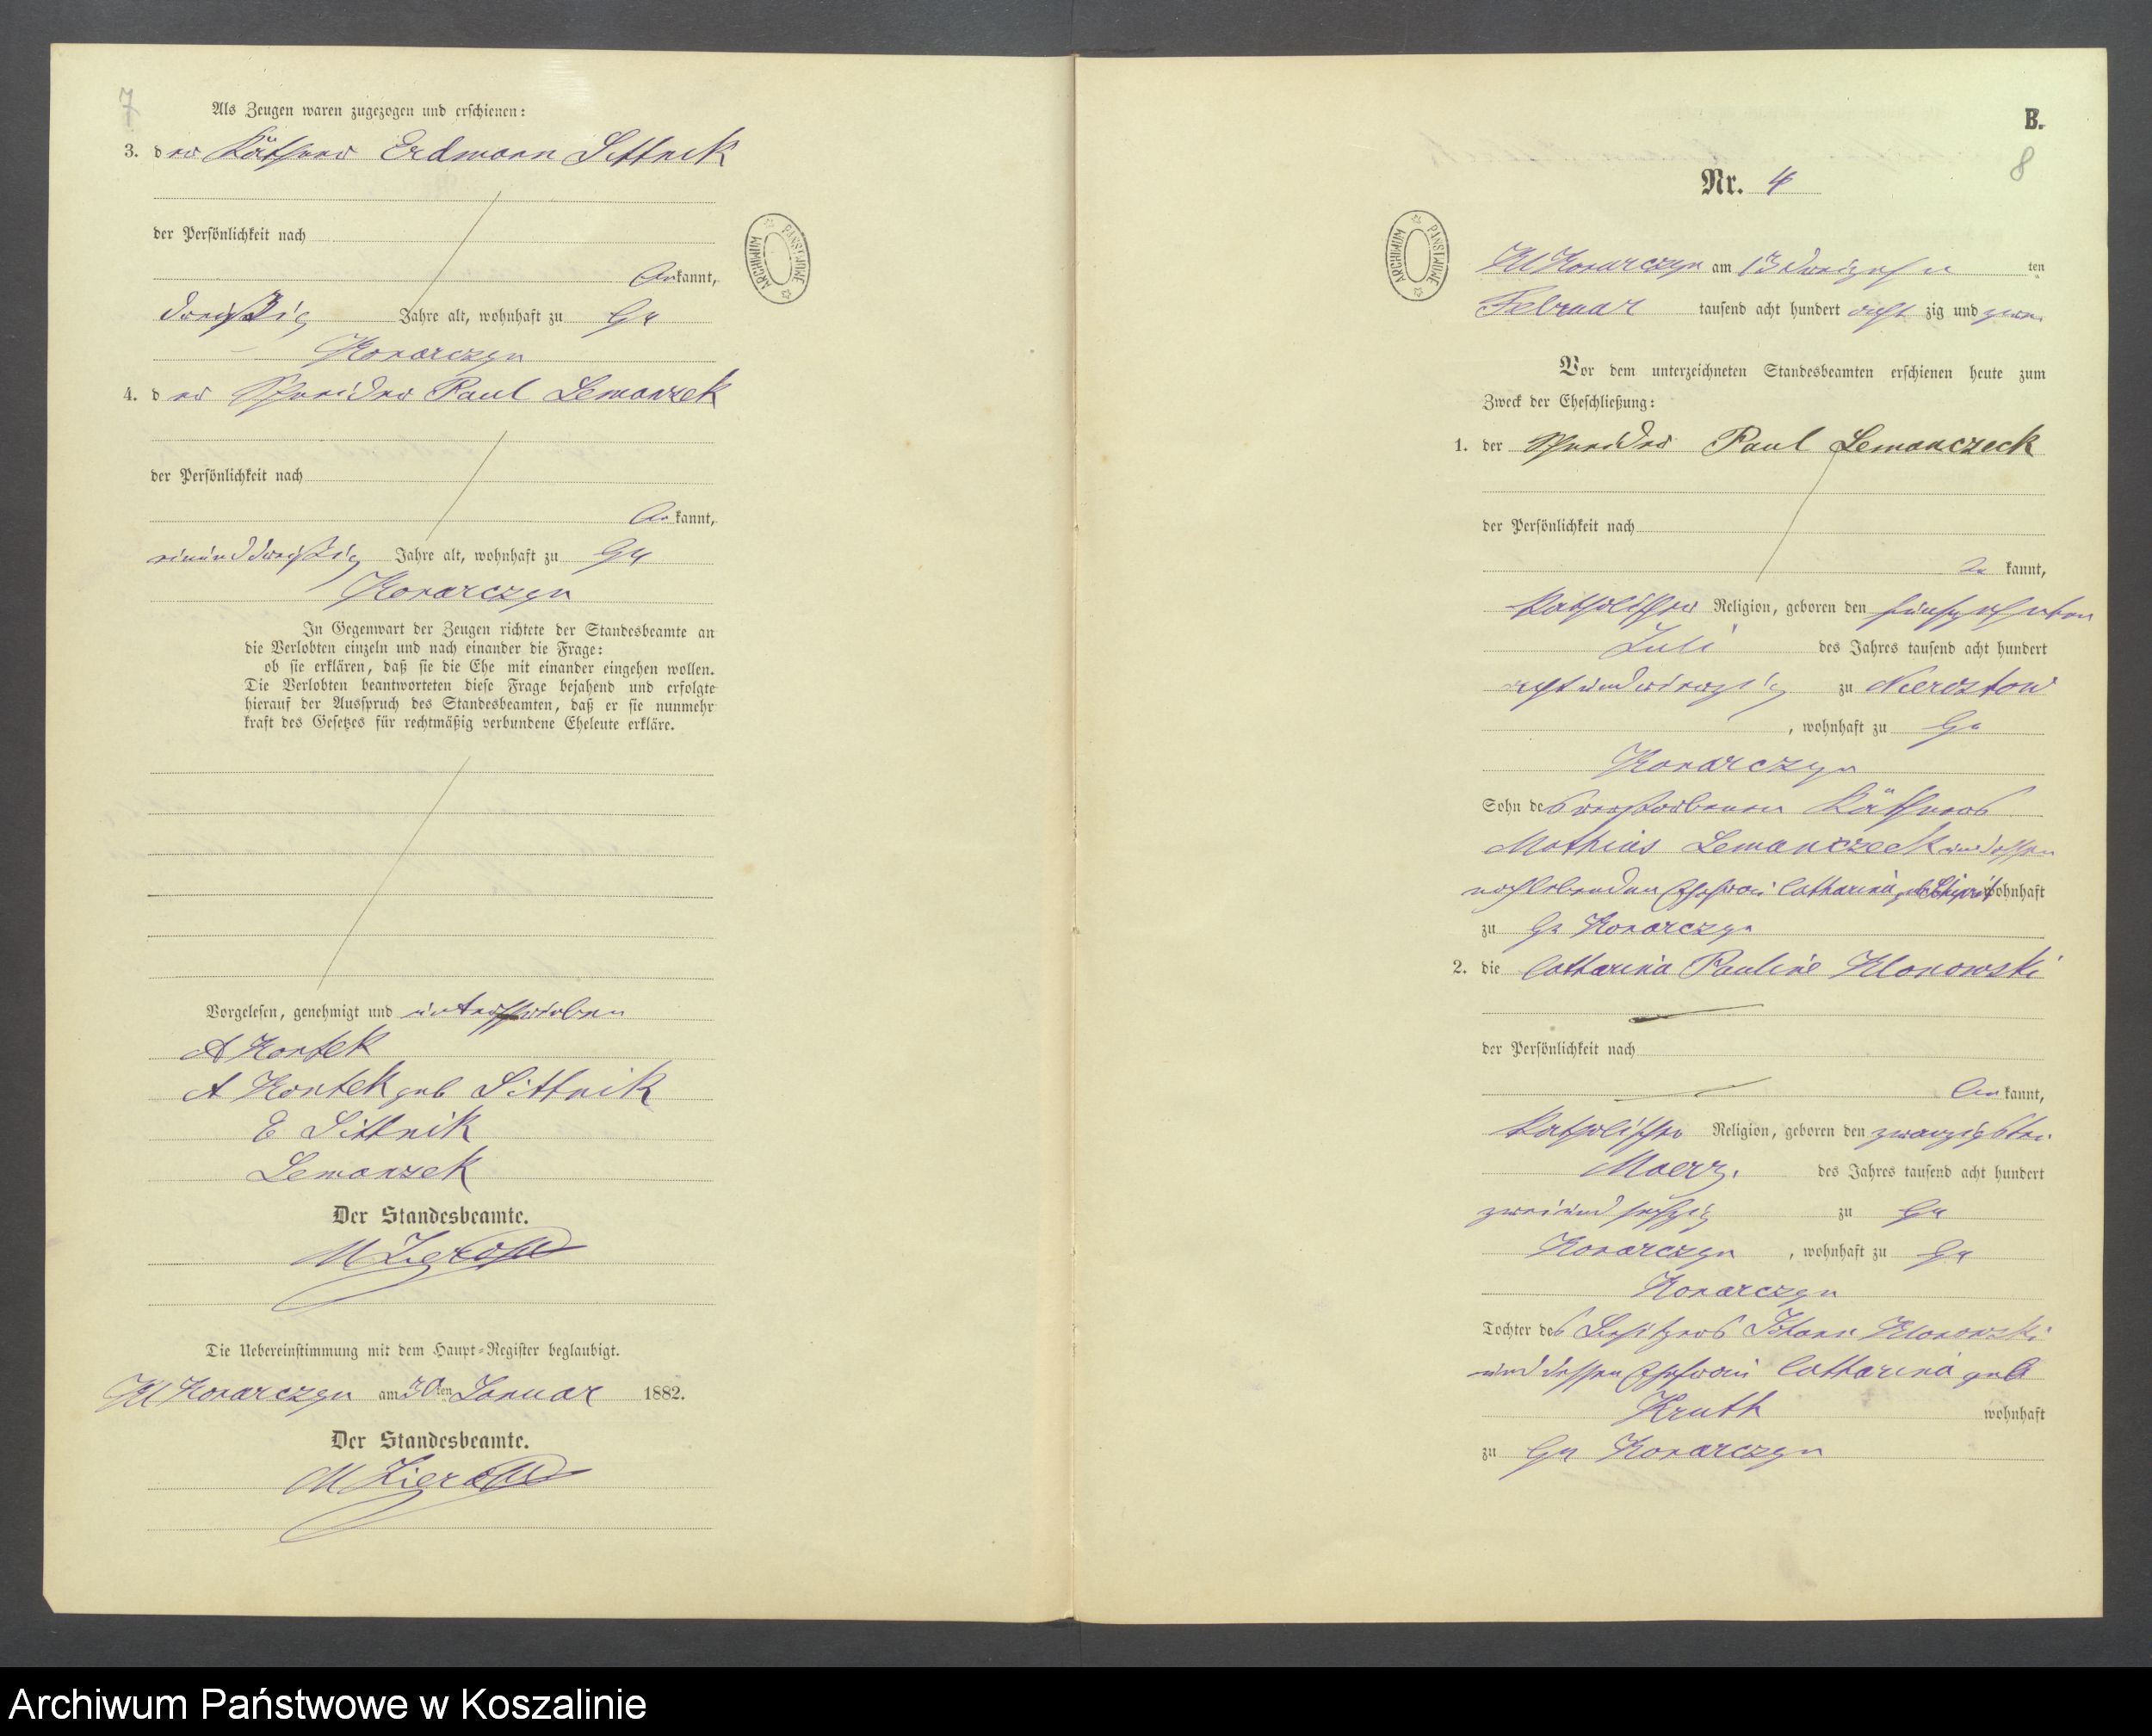 7
Als Zeugen waren zugezogen und erschienen:
3. der Käthner Erdmann Sittnik
der Persönlichkeit nach
bekannt,
dreißig Jahre alt, wohnhaft zu Gr
Konarczyn
4. der Schneider Paul Lemanzek
der Persönlichkeit nach
bekannt,
einunddreißig Jahre alt, wohnhaft zu Gr
Konarczyn
In Gegenwart der Zeugen richtete der Standesbeamte an
die Verlobten einzeln und nach einander die Frage:
ob sie erklären, daß sie die Ehe mit einander eingehen wollen.
Die Verlobten beantworteten diese Frage bejahend und erfolgte
hierauf der Ausspruch des Standesbeamten, daß er sie nunmehr
kraft des Gesetzes für rechtmäßig verbundene Eheleute erkläre.
Vorgelesen, genehmigt und unterschrieben
A Kontek
A Kontek geb Sittnik
E Sittnik
Lemanzek
Der Standesbeamte.
Die Uebereinstimmung mit dem Haupt-Register beglaubigt.
Kl Konarczyn am 30ten Januar 1882.
Der Standesbeamte.
ARCHIWUM PAŃSTWOWE
B.
8
Nr. 4
ARCHIWUM PAŃSTWOWE
Kl Konarczyn am 13 dreizehn ten
Februar tausend acht hundert acht zig und zwei
Vor dem unterzeichneten Standesbeamten erschienen heute zum
Zweck der Eheschließung:
1. der Schneider Paul Lemanczeck
der Persönlichkeit nach
be kannt,
katholischer Religion, geboren den fünfzehnten
Juli des Jahres tausend acht hundert
achtundvierzig zu Nierostow
, wohnhaft zu Gr
Konarczyn
Sohn des verstorbenen Käthners
Mathias Lemanczeck und dessen
nachlebenden Ehefrau Catharina wohnhaft
zu Gr Konarczyn
2. die Catharina Pauline Klonowski
der Persönlichkeit nach
be kannt,
katholischer Religion, geboren den zwanzigsten
Maerz. des Jahres tausend acht hundert
zweiund sechzig zu Gr
Konarczyn , wohnhaft zu Gr
Konarczyn
Tochter des Besitzers Johann Klonowski
und dessen Ehefrau Catharina geb
Kruth wohnhaft
zu Gr Konarczyn
Archiwum Państwowe w Koszalinie